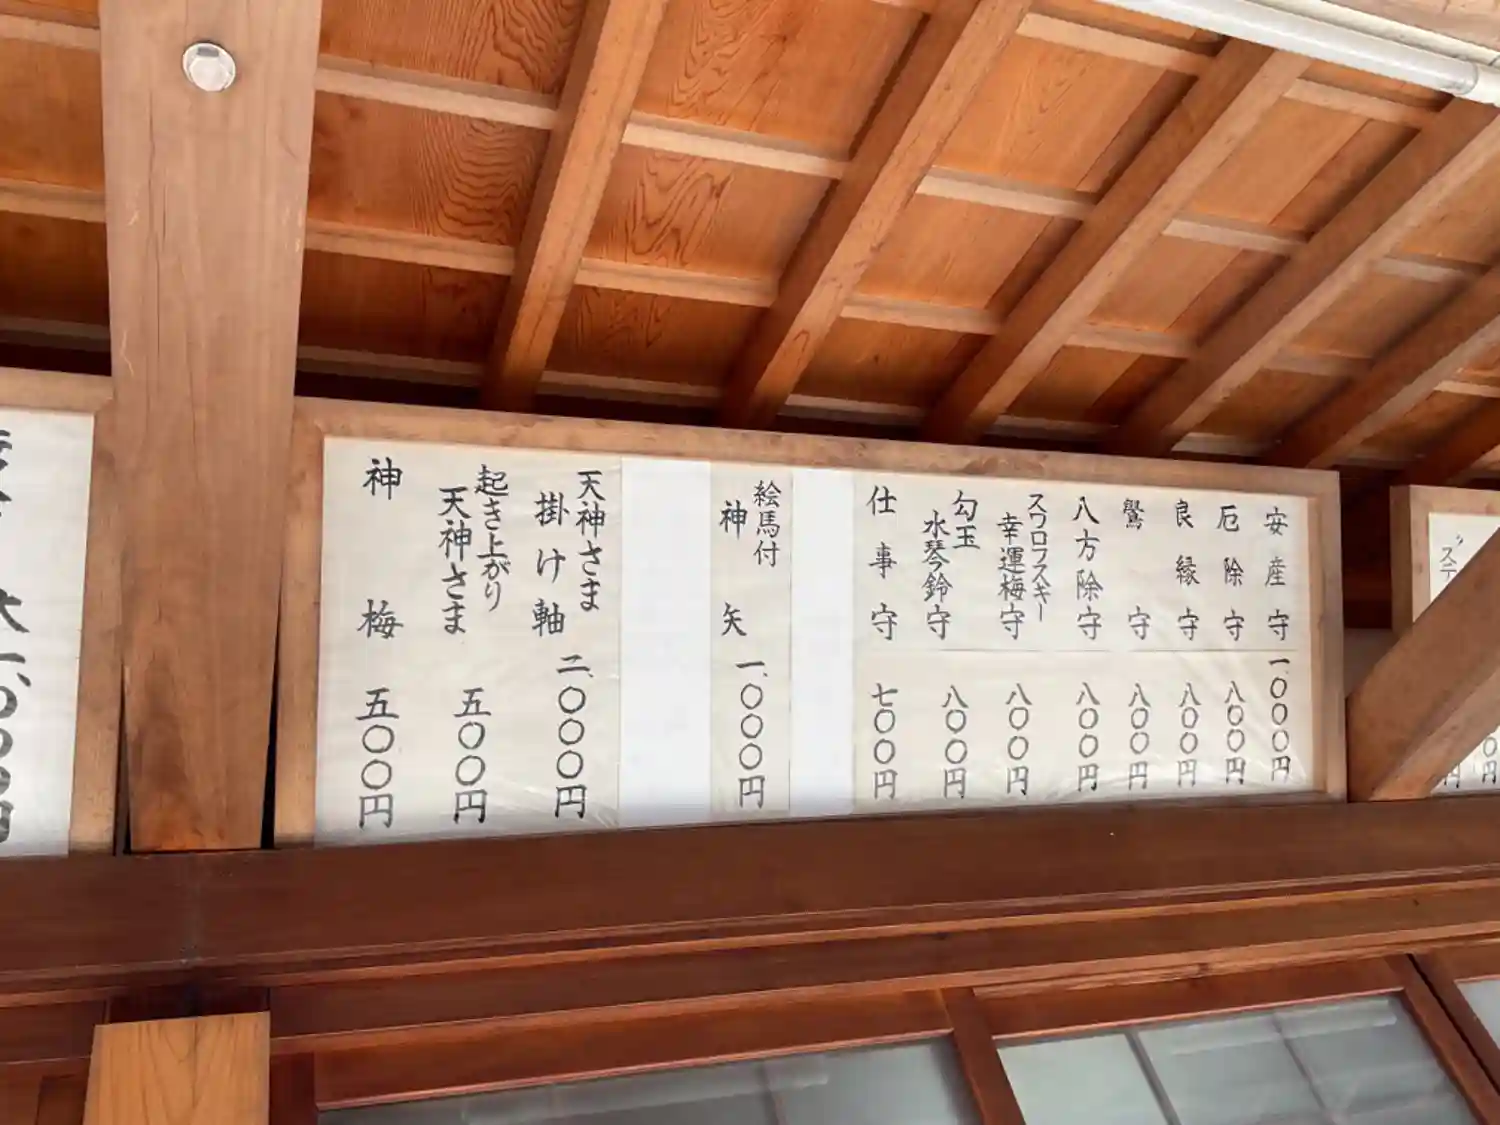 安産守 一、〇〇〇円
厄除守 八〇〇円
良縁守 八〇〇円
鷽守 八〇〇円
八方除守 八〇〇円
スワロフスキー
幸運梅守 八〇〇円
勾玉
水琴鈴守 八〇〇円
仕事守 七〇〇円
絵馬付
神矢 一、〇〇〇円
天神さま
掛け軸 二、〇〇〇円
起き上がり
天神さま 五〇〇円
神梅 五〇〇円
大 一、〇〇〇円